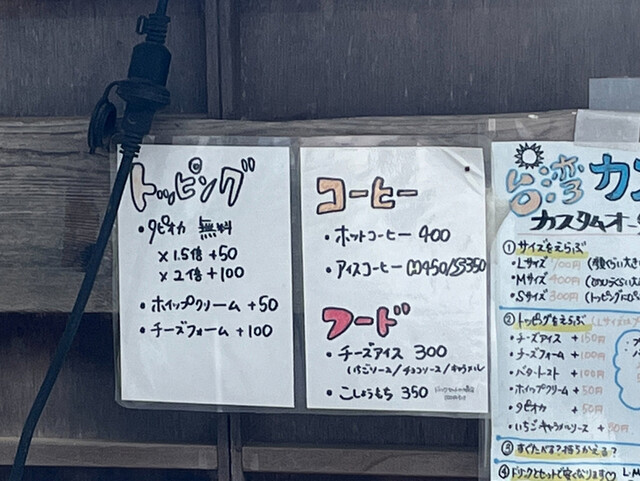 トッピング
・タピオカ 無料
×1.5倍 +50
×2倍 +100
・ホイップクリーム +50
・チーズフォーム +100
コーヒー
・ホットコーヒー 400
・アイスコーヒー (M)450/(S)350
フード
・チーズアイス 300
いちごソース/チョコソース/キャラメル
・こしょうもち 350
台湾カ
カスタムオー
①サイズをえらぶ
・Lサイズ 700円
・Mサイズ 400円
・Sサイズ 300円
②トッピングをえらぶ
・チーズアイス +150円
・チーズフォーム +100円
・バタートースト +100円
・ホイップクリーム +50円
・タピオカ +50円
・いちごキャラメルソース +50円
③すぐたべる?持ちかえる?
④ドリンクとセットで安くなります♡ L.M